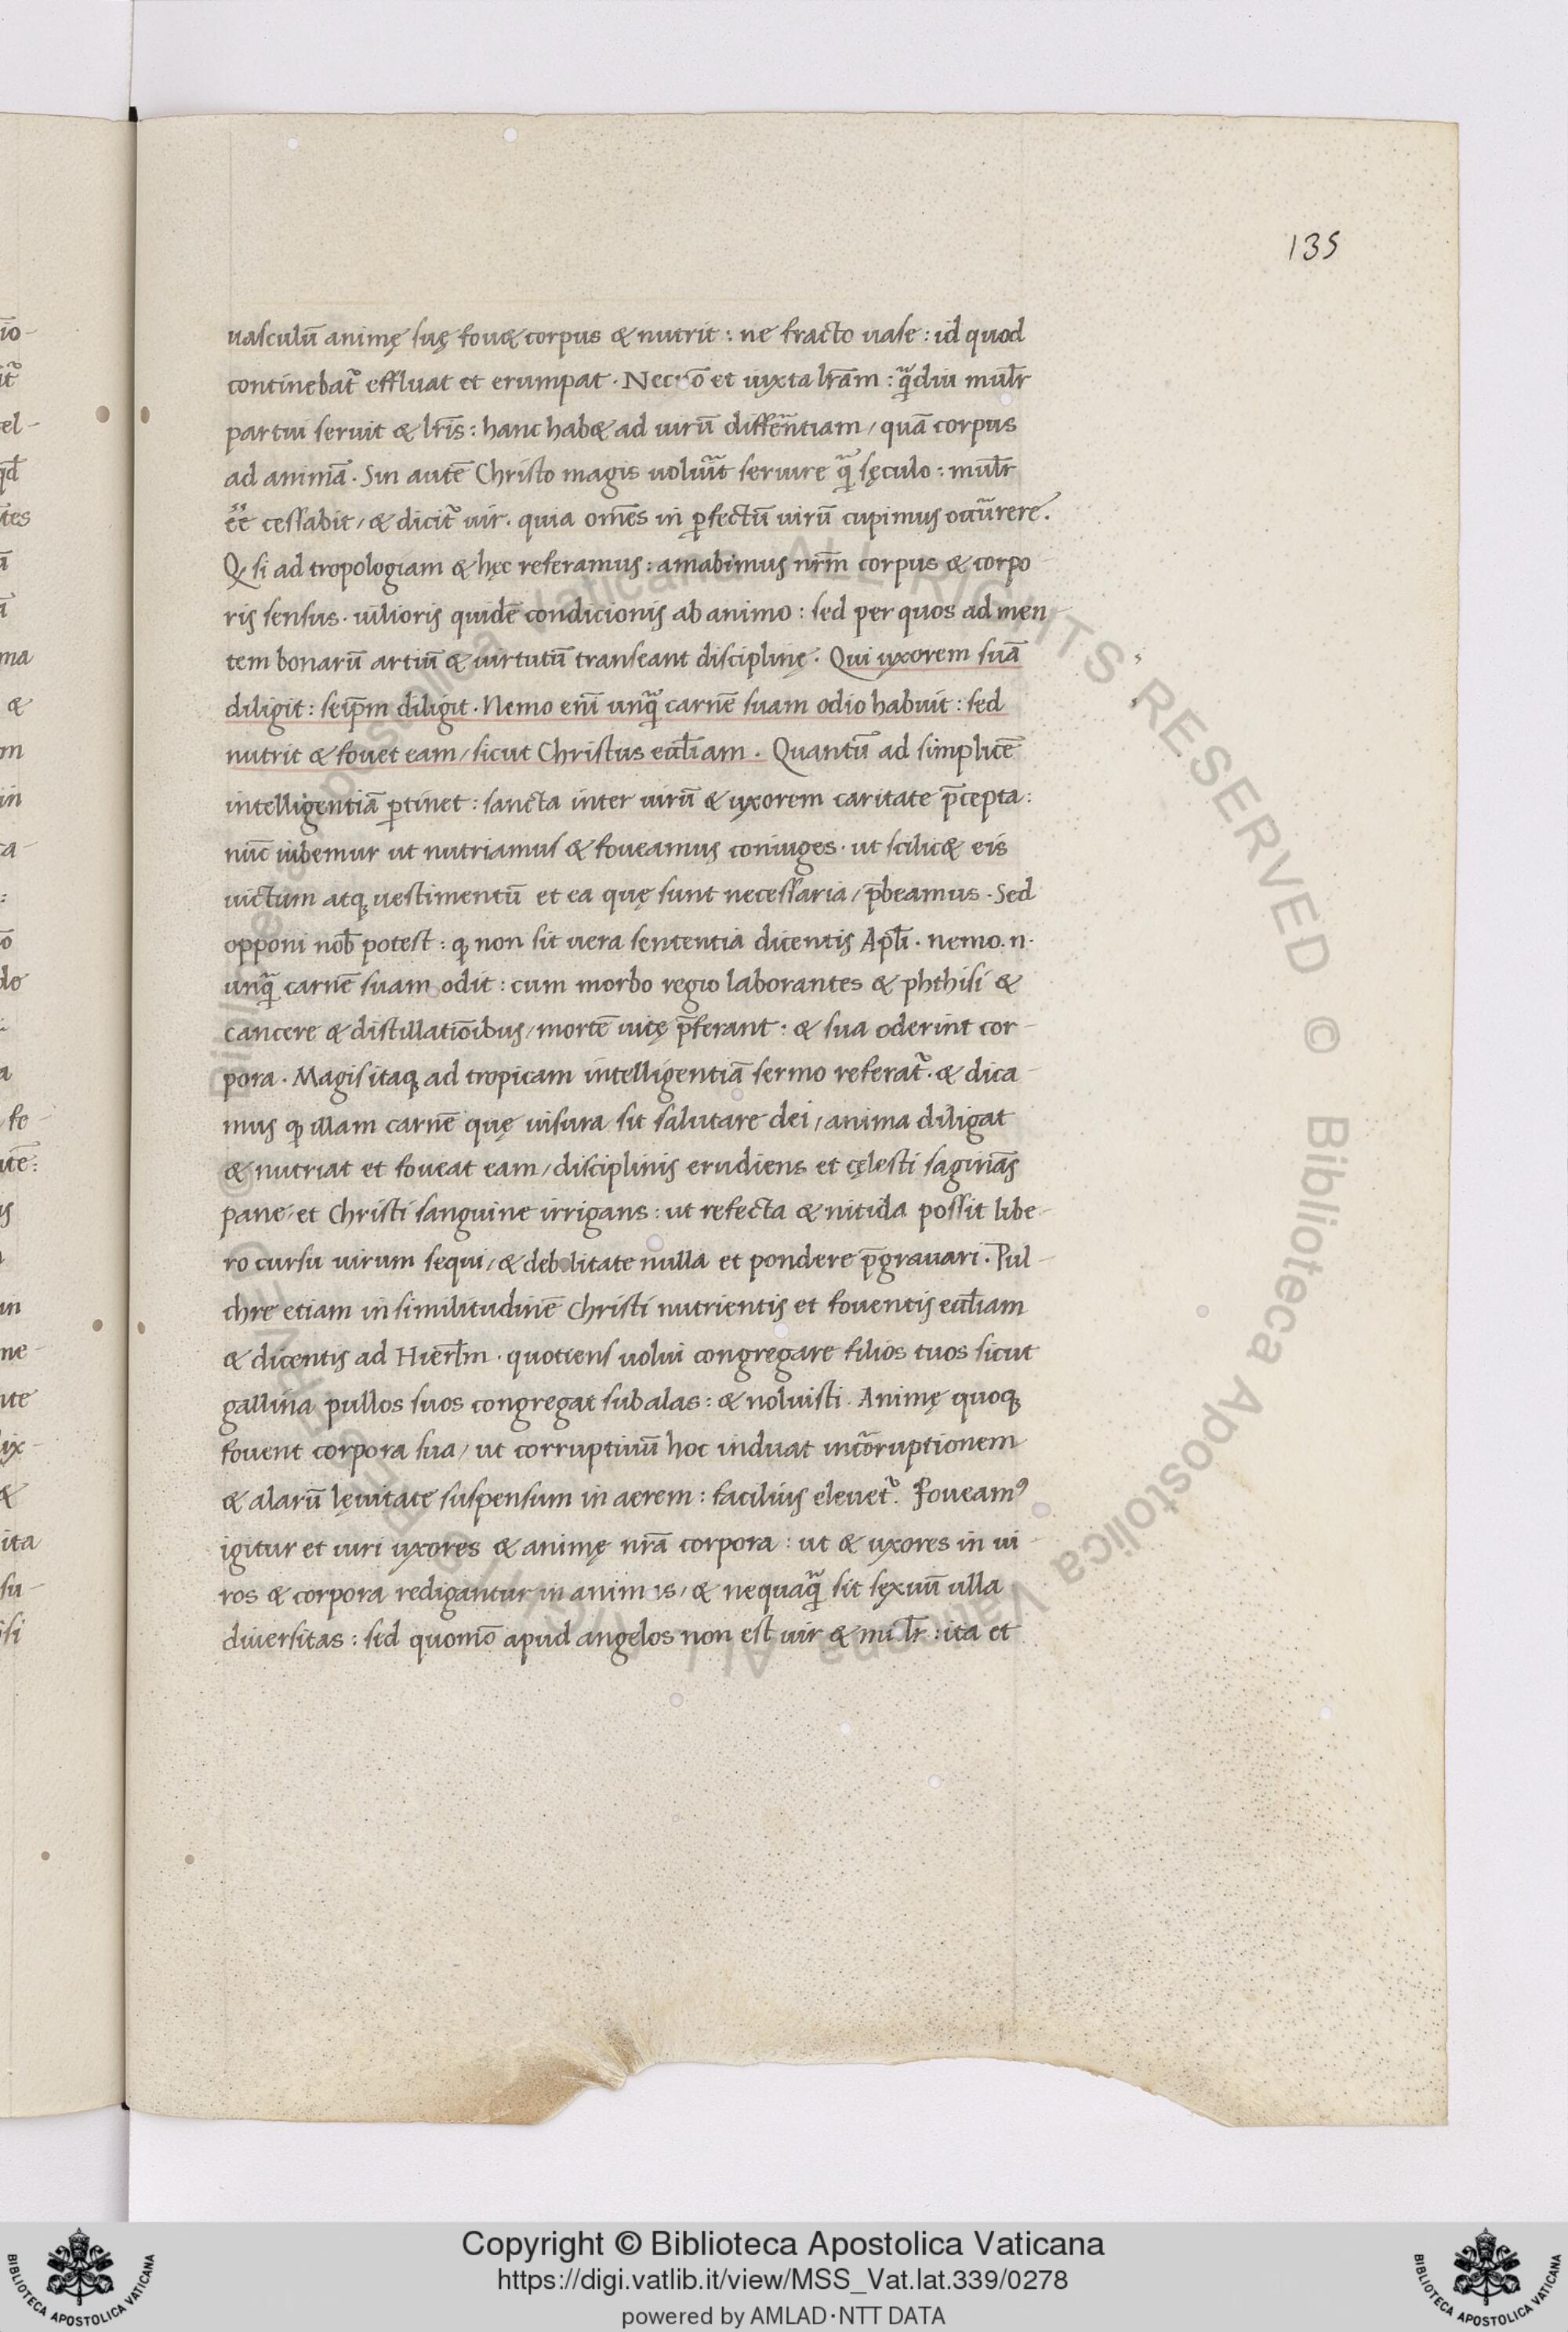 135
uasculū animę suę fouet corpus & nutrit : ne fracto uase : id quod
continebat᷑ effluat et erumpat . Nec nō et iuxta lr̄am : qᷓdiu mulr̄
partui seruit & lr̄is : hanc habet ad uirū diffeᷓntiam / quā corpus
ad animā . Sin autē Christo magis uolueᷓit seruire qᷓ sęculo : mulr̄
eē cessabit / & dicit᷑ uir . quia om̄es in ꝑfectū uirū cupimus occurrere .
Q si ad tropologiam & hęc referamus : amabimus nr̄m corpus & corpo-
ris sensus . uilioris quidē condicionis ab animo : sed per quos ad men-
tem bonarū artiū & uirtutū transeant disciplinę . Qui uxorem suā
diligit : seip̄m diligit . Nemo eni̅ unqᷓ carnē suam odio habuit : sed
nutrit & fouet eam / sicut Christus eccl̄iam . Quantū ad simplicē
intelligentiā ꝑtinet : sancta inter uirū & uxorem caritate p̄cepta :
nūc iubemur ut nutriamus & foueamus coniuges . ut scilicet eis
uictum atqꝫ uestimentū et ea quę sunt necessaria / p̄beamus . Sed
opponi nob̄ potest : ꝙ non sit uera sententia dicentis Apl̄i . nemo .n.
unqᷓ carnē suam odit : cum morbo regio laborantes & phthisi &
cancere & distillatiōibus / mortē uitę p̄ferant : & sua oderint cor-
pora . Magis itaqꝫ ad tropicam intelligentiā sermo referat᷑ . & dica-
mus ꝙ illam carnē quę uisura sit salutare dei / anima diligat
& nutriat et foueat eam / disciplinis erudiens et cęlesti saginās
pane / et Christi sanguine irrigans : ut refecta & nitida possit libe-
ro cursu uirum sequi / & debilitate nulla et pondere p̄grauari . Pul-
chre etiam in similitudinē Christi nutrientis et fouentis eccl̄iam
& dicentis ad Hierl̄m . quotiens uolui congregare filios tuos sicut
gallina pullos suos congregat sub alas : & noluisti . Animę quoqꝫ
fouent corpora sua / ut corruptiuū hoc induat incorruptionem
& alarū lęuitate suspensum in aerem : facilius eleuet᷑ . Foueamꝰ
igitur et uiri uxores & animę nr̄a corpora : ut & uxores in ui-
ros & corpora redigantur in animas / & nequaqᷓ sit sęxuū ulla
diuersitas : sed quomō apud angelos non est uir & mulr̄ : ita et
Copyright © Biblioteca Apostolica Vaticana
https://digi.vatlib.it/view/MSS_Vat.lat.339/0278
powered by AMLAD·NTT DATA